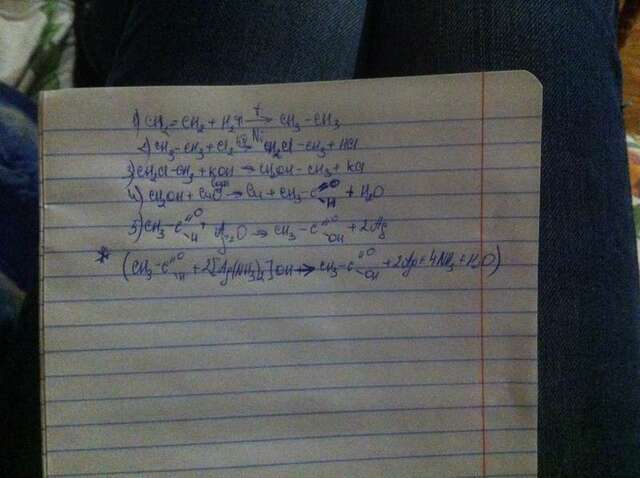 1) CH2=CH2 + H2 t→Ni CH3-CH3
2) CH3-CH3 + Cl2 → CH2Cl-CH3 + HCl
3) CH2Cl-CH3 + KOH → CH2OH-CH3 + KCl
4) CH3OH + CuO → Cu + CH3-C=O H + H2O
5) CH3-C=O H + Ag2O → CH3-C=O OH + 2Ag
* (CH3-C=O H + 2[Ag(NH3)2]OH → CH3-C=O OH + 2Ag + 4NH3 + H2O)